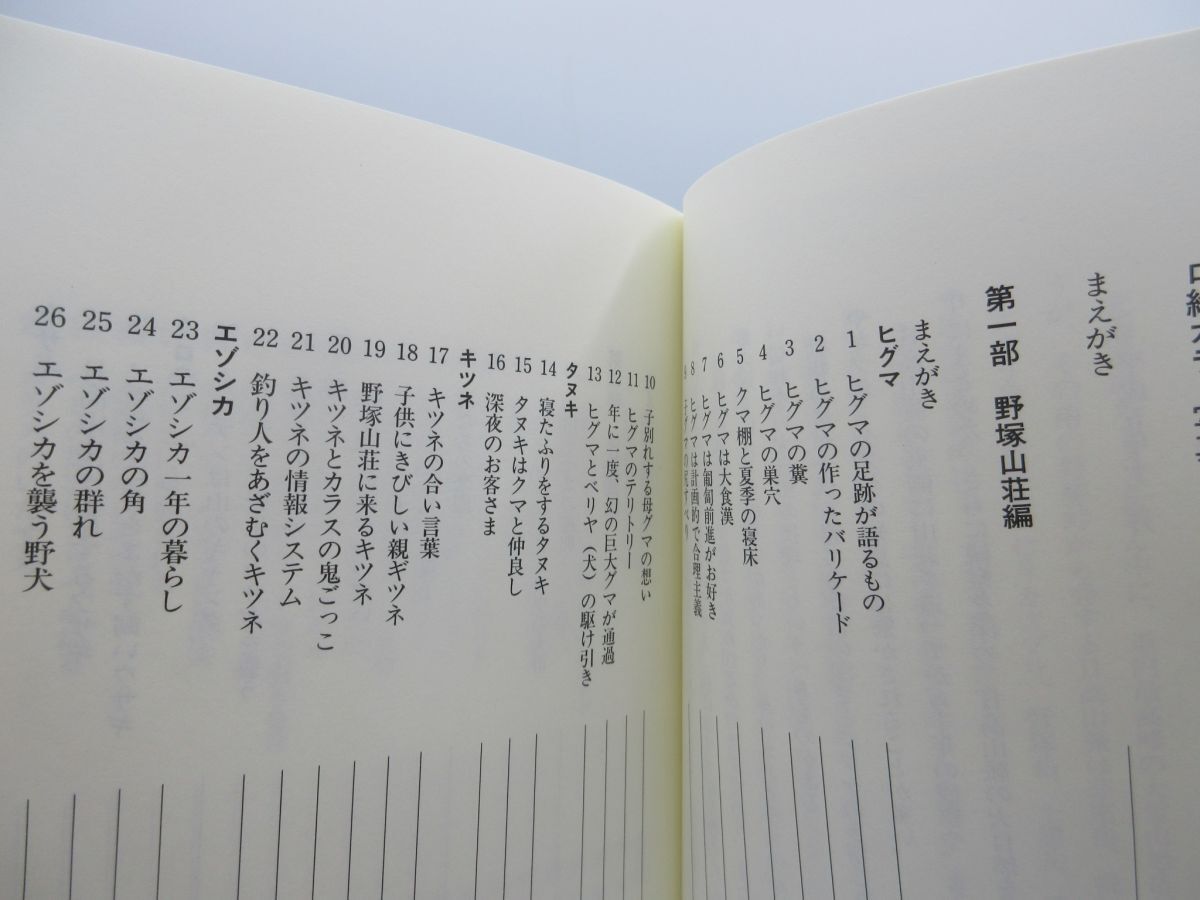 まえがき
第一部 野塚山荘編
まえがき
ヒグマ
1 ヒグマの足跡が語るもの
2 ヒグマの作ったバリケード
3 ヒグマの糞
4 ヒグマの巣穴
5 クマ棚と夏季の寝床
6 ヒグマは大食漢
7 ヒグマは匍匐前進がお好き
8 ヒグマは計画的で合理主義
10 子別れする母グマの想い
11 ヒグマのテリトリー
12 年に一度、幻の巨大グマが通過
13 ヒグマとベリヤ(犬)の駆け引き
タヌキ
14 寝たふりをするタヌキ
15 タヌキはクマと仲良し
16 深夜のお客さま
キツネ
17 キツネの合い言葉
18 子供にきびしい親ギツネ
19 野塚山荘に来るキツネ
20 キツネとカラスの鬼ごっこ
21 キツネの情報システム
22 釣り人をあざむくキツネ
エゾシカ
23 エゾシカ一年の暮らし
24 エゾシカの角
25 エゾシカの群れ
26 エゾシカを襲う野犬